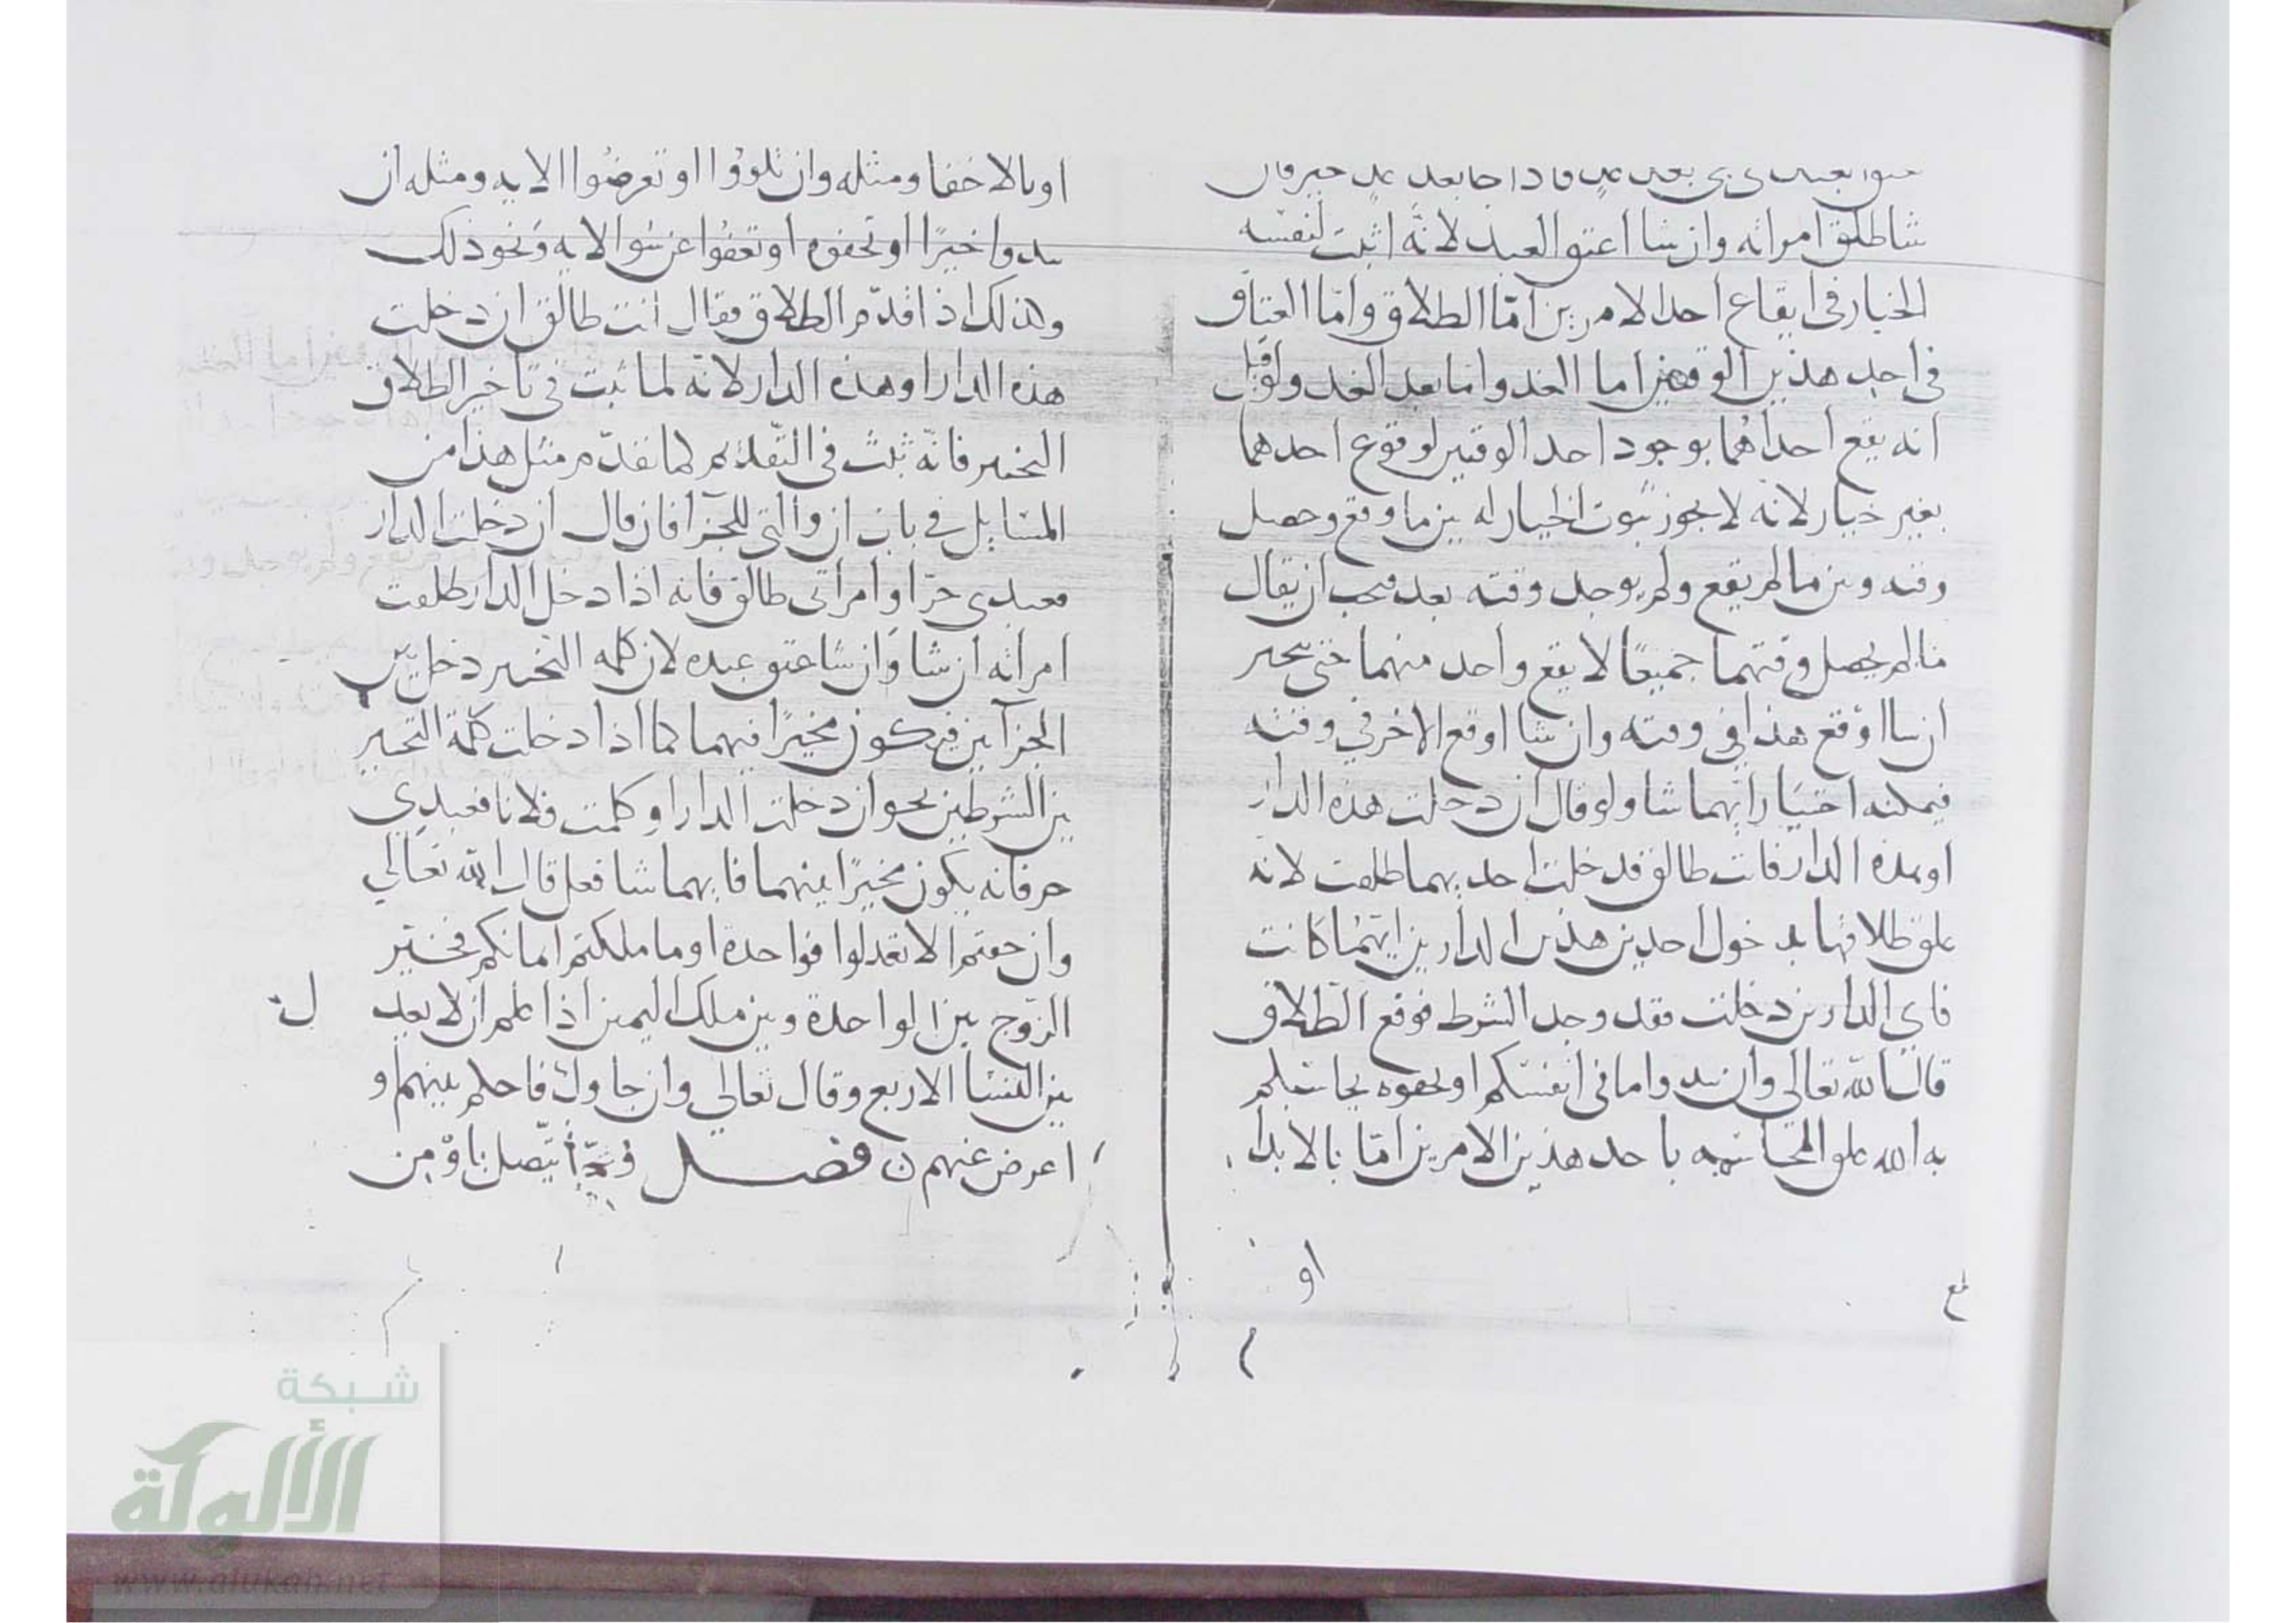 شا طلق امراته وان شا اعتق العبد لانه اثبت لنفسه
الخيار في ايقاع احد الامرين اما الطلاق واما العتاق
في احد هذين الوقتين اما الغد واما بعد الغد ولو قيل
انه يقع احداهما بوجود احد الوقتين لوقوع احدهما
بغير خيار لانه لا يجوز ثبوت الخيار له بين ما وقع وحصل
وقته وبين ما لم يقع ولم يوجد وقته بعد فيجب ان يقال
ما لم يحصل وقتهما جميعًا لا يقع واحد منهما حتى يتخير
ان شا اوقع هذا في وقته وان شا اوقع الاخر في وقته
فيمكنه اختيار ايهما شا ولو قال ان دخلت هذه الدار
او هذه الدار فانت طالق فدخلت احديهما طلقت لانه
علق طلاقها بدخول احدى هذين الدارين ايتهما كانت
فاي الدارين دخلت فقد وجد الشرط فوقع الطلاق
قال الله تعالى وان تبدوا ما في انفسكم او تخفوه يحاسبكم
به الله علق المحاسبة باحد هذين الامرين اما بالابدا
او
او بالاخفا ومثله وان تلووا او تعرضوا الاية ومثله ان
تبدوا خيرًا او تخفوه او تعفوا عن سو الاية ونحو ذلك
وكذلك اذا قدم الطلاق فقال انت طالق ان دخلت
هذه الدار او هذه الدار لانه لما ثبت في تاخير الطلاق
التخيير فانه ثبت في التقديم كما تقدم مثل هذا من
المسايل في باب ان والتي للجزا فان قال ان دخلت الدار
فعبدي حر او امراتي طالق فانه اذا دخل الدار طلقت
امراته ان شا وان شا عتق عبده لان كلمه التخيير دخل بين
الجزآين فيكون مخيرًا فيهما كما اذا دخلت كلمة التخيير
بين الشرطين نحو ان دخلت الدار او كلمت فلانا فعبدي
حر فانه يكون مخيرًا بينهما فايهما شا فعل قال الله تعالى
وان خفتم الا تعدلوا فواحدة او ما ملكتم ايمانكم فخير
الزوج بين الواحدة وبين ملك اليمين اذا علم ان لا يعدل
بين النسا الاربع وقال تعالى وان جاوك فاحكم بينهم او
اعرض عنهم فصل يتصل باو من
شبكة
الألوكة
www.alukah.net